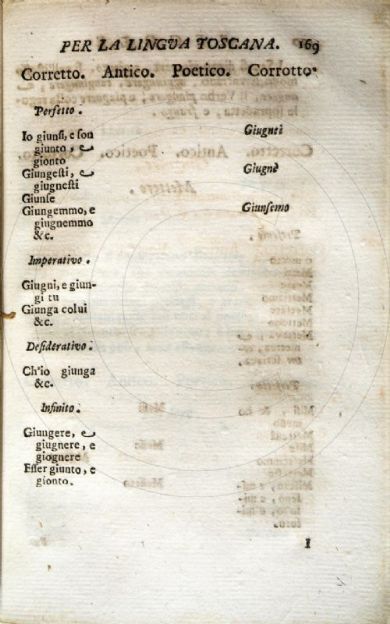 PER LA LINGVA TOSCANA. 169
Corretto. Antico. Poetico. Corrotto.
Perfetto.
Io giunsi, e son Giugnei
giunto, e
gionto
Giungesti, e Giugnè
giugnesti
Giunse
Giungemmo, e Giunsemo
giugnemmo
&c.
Imperativo.
Giugni, e giun-
gi tu
Giunga colui
&c.
Desiderativo.
Ch'io giunga
&c.
Infinito.
Giungere, e
giugnere, e
giognere
Esser giunto, e
gionto.
I